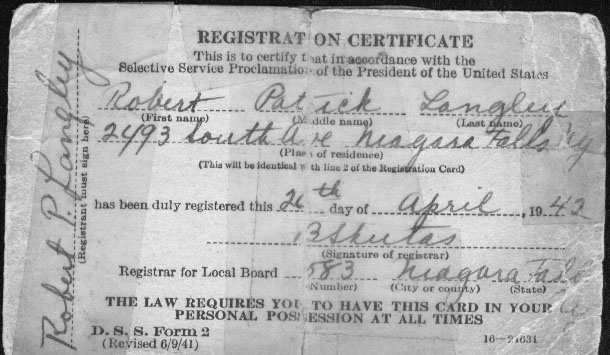 REGISTRATION CERTIFICATE
This is to certify that in accordance with the
Selective Service Proclamation of the President of the United States
Robert Patrick Langley
(First name) (Middle name) (Last name)
2493 South Ave Niagara Falls Ny
(Place of residence)
(This will be identical with line 2 of the Registration Card)
has been duly registered this 26th day of April, 1942
(Signature of registrar)
Registrar for Local Board 583 Niagara Falls
(Number) (City or county) (State)
THE LAW REQUIRES YOU TO HAVE THIS CARD IN YOUR
PERSONAL POSSESSION AT ALL TIMES
D. S. S. Form 2
(Revised 6/9/41) 16—21631
Robert P. Langley
(Registrant must sign here)